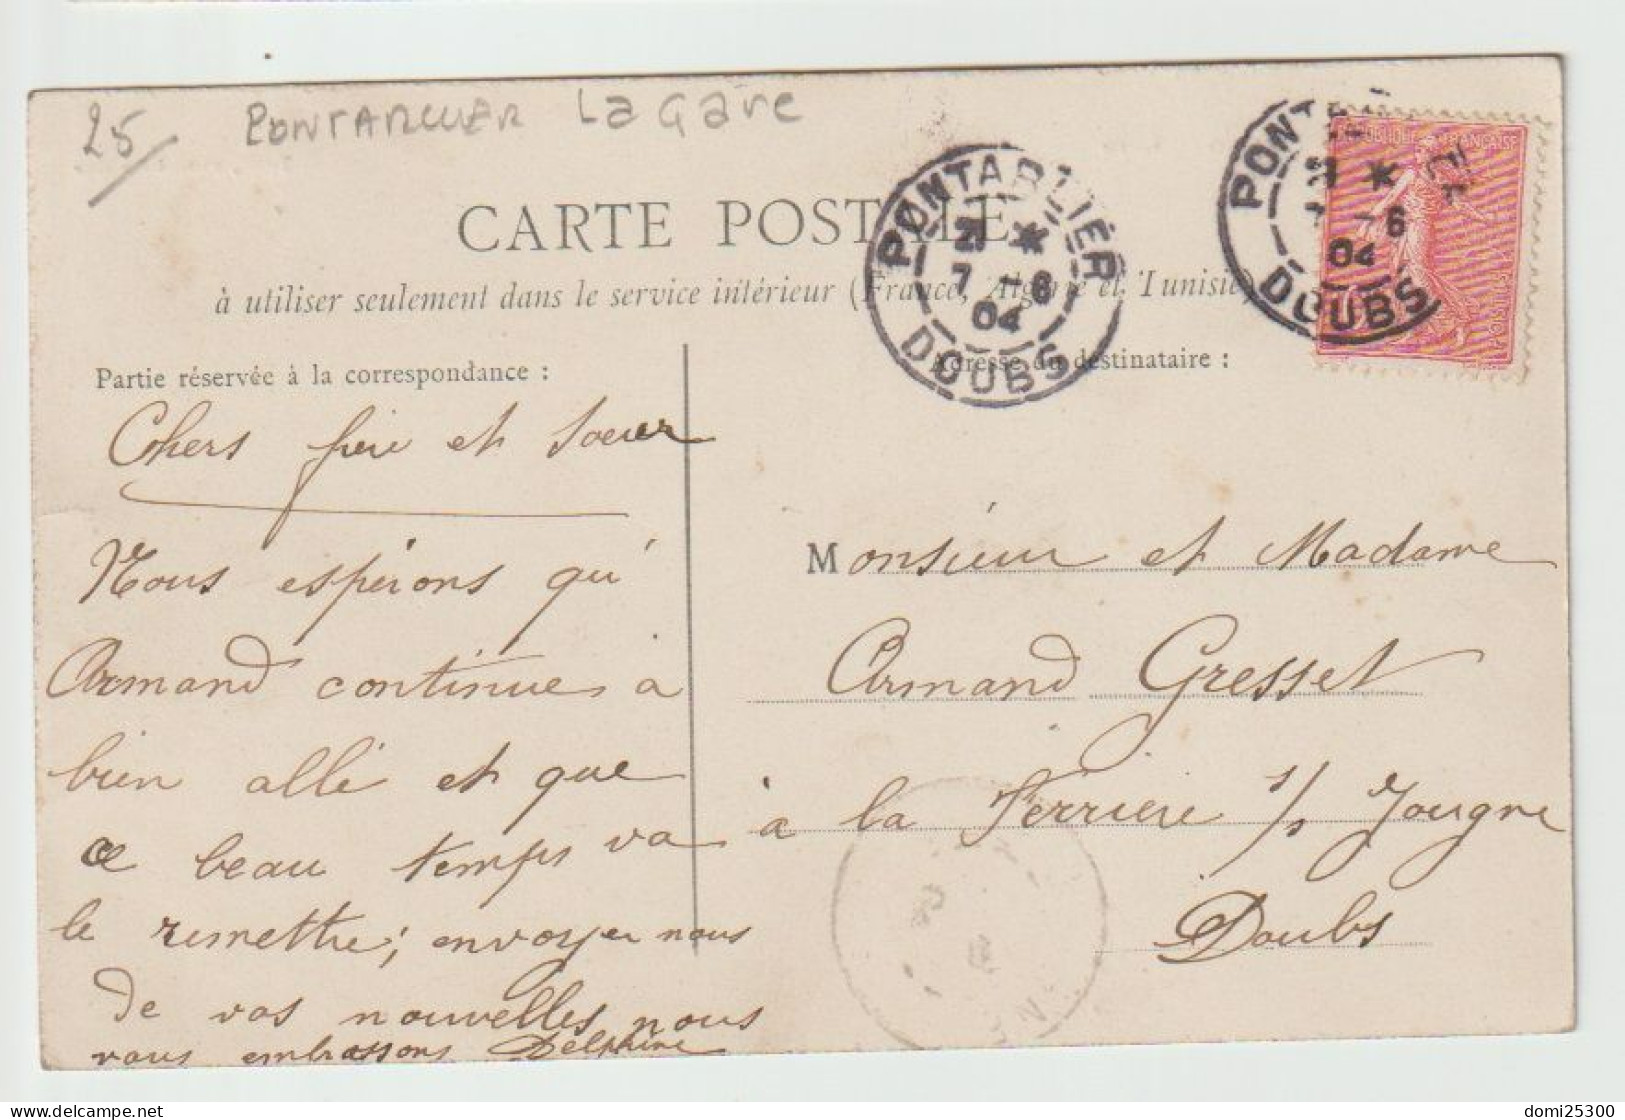 25/ PONTARLIER La Gare
CARTE POSTALE
à utiliser seulement dans le service intérieur (France, Algérie et Tunisie)
PONTARLIER
21 *
7 - 6
04
DOUBS
PONTARLIER
21 *
7 - 6
04
DOUBS
RÉPUBLIQUE FRANÇAISE
POSTES
Partie réservée à la correspondance :
Chers frère et soeur
Nous espérons qu'
Armand continue à
bien allé et que
ce beau temps va
le remettre; envoyer nous
de vos nouvelles nous
vous embrassons Delphine
Adresse du destinataire :
Monsieur et Madame
Armand Gresset
à la Ferriere s/s Jougne
Doubs
delcampe.net
domi25300